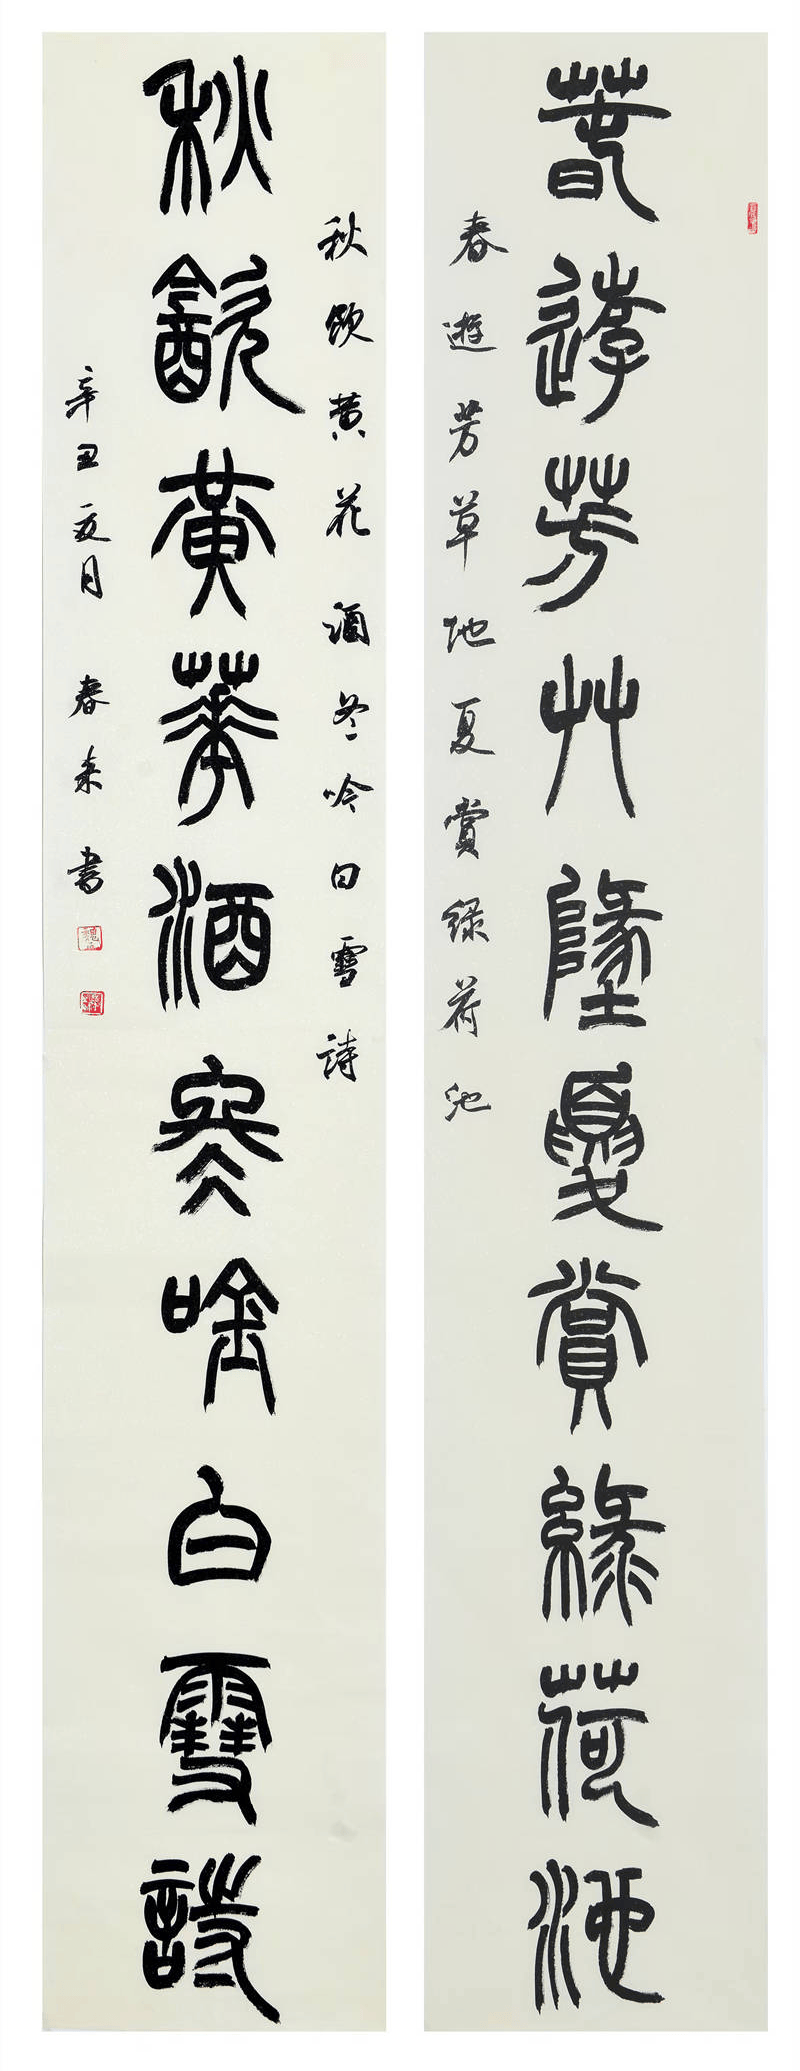 春遊芳艸墬夏賞緑荷池
春遊芳草地夏賞緑荷池
秋飲黄花酒冬吟白雪詩
秋㱃黃華酒冬唫白雪詩
辛丑夏月 春来書